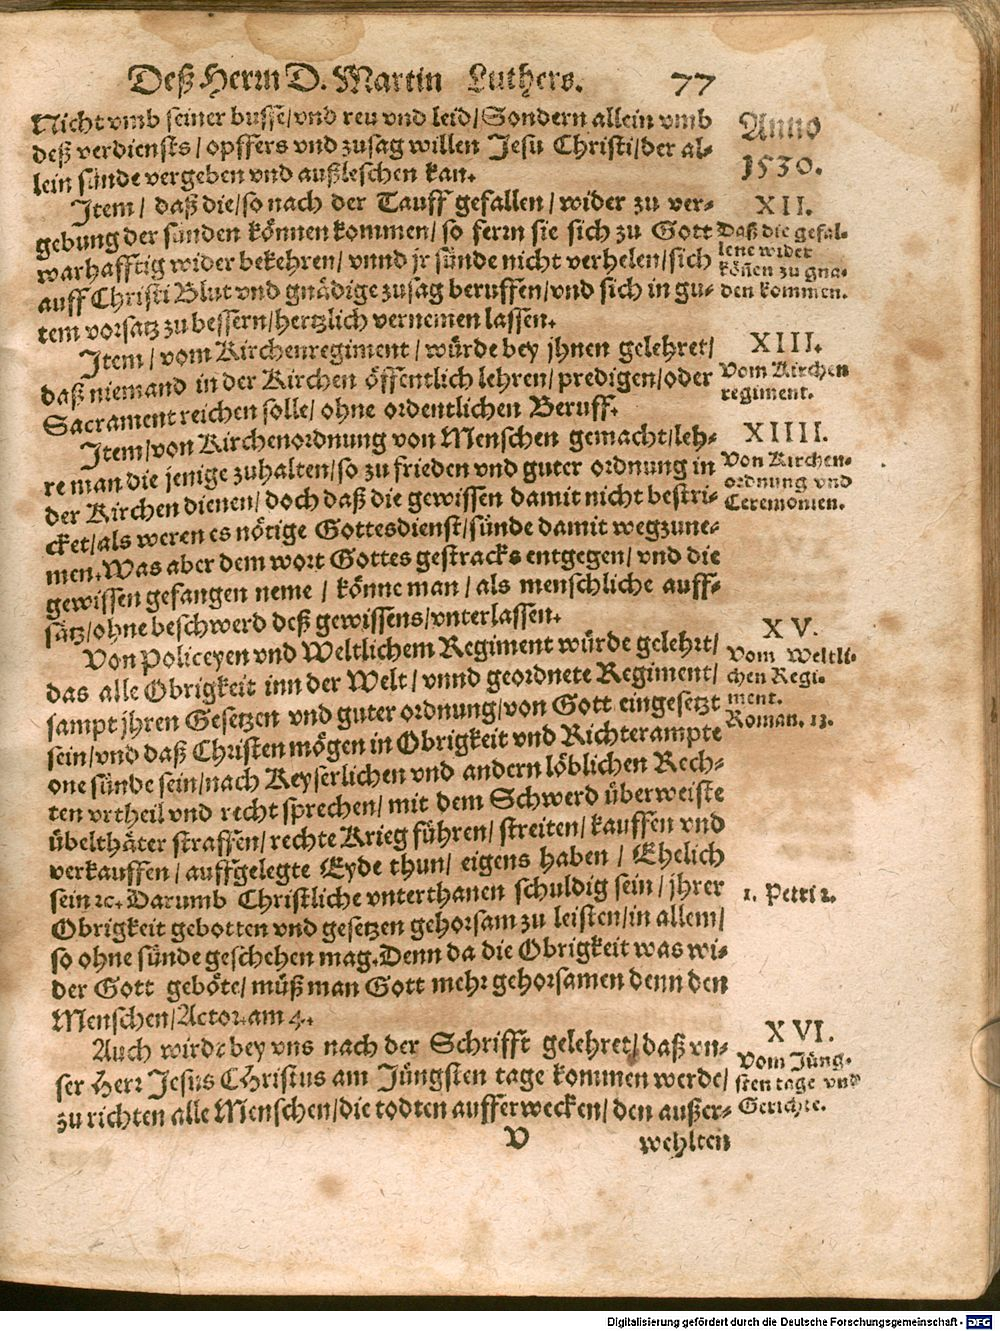 Deß Herrn D. Martin Luthers. 77
Nicht vmb seiner busse/vnd reu vnd leid/Sondern allein vmb
deß verdiensts/opffers vnd zusag willen Jesu Christi/der al-
lein sünde vergeben vnd außleschen kan.
Anno
1530.
Item/ daß die/so nach der Tauff gefallen/wider zu ver-
gebung der sünden können kommen/ so ferrn sie sich zu Gott
warhafftig wider bekehren/ vnnd jr sünde nicht verhelen/sich
auff Christi Blut vnd gnädige zusag beruffen/vnd sich in gu-
tem vorsatz zu bessern/hertzlich vernemen lassen.
XII.
Daß die gefal-
lene wider
können zu gna-
den kommen.
Item/vom Kirchenregiment/würde bey jhnen gelehret/
daß niemand in der Kirchen öffentlich lehren/predigen/oder
Sacrament reichen solle/ ohne ordentlichen Beruff.
XIII.
Vom Kirchen
regiment.
Item/von Kirchenordnung von Menschen gemacht/leh-
re man die jenige zuhalten/so zu frieden vnd guter ordnung in
der Kirchen dienen/ doch daß die gewissen damit nicht bestri-
cket/als weren es nötige Gottesdienst/sünde damit wegzune-
men. Was aber dem wort Gottes gestracks entgegen/vnd die
gewissen gefangen neme / könne man/als menschliche auff-
sätz/ohne beschwerd deß gewissens/vnterlassen.
XIIII.
Von Kirchen-
ordnung vnd
Ceremonien.
Von Policeyen vnd Weltlichem Regiment würde gelehrt/
das alle Obrigkeit inn der Welt/vnnd geordnete Regiment/
sampt jhren Gesetzen vnd guter ordnung/von Gott eingesetzt
sein/vnd daß Christen mögen in Obrigkeit vnd Richterampte
one sünde sein/nach Keyserlichen vnd andern löblichen Rech-
ten vrtheil vnd recht sprechen/ mit dem Schwerd überweiste
übelthäter straffen/rechte Krieg führen/streiten/kauffen vnd
verkauffen/auffgelegte Eyde thun/ eigens haben / Ehelich
sein ꝛc. Darumb Christliche vnterthanen schuldig sein/jhrer
Obrigkeit gebotten vnd gesetzen gehorsam zu leisten/in allem/
so ohne sünde geschehen mag. Denn da die Obrigkeit was wi-
der Gott geböte/ müß man Gott mehr gehorsamen denn den
Menschen/Actor.am 4.
XV.
Vom Weltli-
chen Regi-
ment.
Roman. 13.
1. Petri 2.
Auch wirde bey vns nach der Schrifft gelehret/daß vn-
ser Herr Jesus Christus am Jüngsten tage kommen werde/
zu richten alle Menschen/die todten aufferwecken/den außer-
XVI.
Vom Jüng-
sten tage vnd
Gerichte.
V wehlten
Digitalisierung gefördert durch die Deutsche Forschungsgemeinschaft - DFG